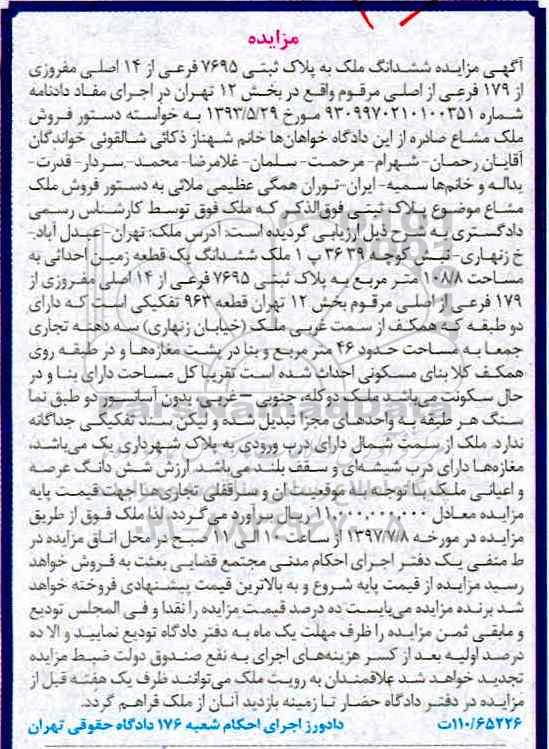 مزایده
آگهی مزایده ششدانگ ملک به پلاک ثبتی ۷۶۹۵ فرعی از ۱۴ اصلی مفروزی
از ۱۷۹ فرعی از اصلی مرقوم واقع در بخش ۱۲ تهران در اجرای مفاد دادنامه
شماره ۹۳۰۹۹۷۰۲۱۰۱۰۰۳۵۱ مورخ ۱۳۹۳/۵/۲۹ به خواسته دستور فروش
ملک مشاع صادره از این دادگاه خواهان‌ها خانم شهناز ذکائی شالقونی خواندگان
آقایان رحمان- شهرام- مرحمت- سلمان- غلامرضا- محمد- سردار- قدرت-
یداله و خانم‌ها سمیه- ایران- توران همگی عظیمی ملائی به دستور فروش ملک
مشاع موضوع پلاک ثبتی فوق‌الذکر که ملک فوق توسط کارشناس رسمی
دادگستری به شرح ذیل ارزیابی گردیده است: آدرس ملک: تهران- عبدل آباد-
خ زنهاری- نبش کوچه ۳۹ ۳۶ پ ۱ ملک ششدانگ یک قطعه زمین احداثی به
مساحت ۱۰۷/۸ متر مربع به پلاک ثبتی ۷۶۹۵ فرعی از ۱۴ اصلی مفروزی از
۱۷۹ فرعی از اصلی مرقوم بخش ۱۲ تهران قطعه ۹۶۳ تفکیکی است که دارای
دو طبقه که همکف از سمت غربی ملک (خیابان زنهاری) سه دهنه تجاری
جمعا به مساحت حدود ۴۶ متر مربع و بنا در پشت مغازه‌ها و در طبقه روی
همکف کلا بنای مسکونی احداث شده است تقریبا کل مساحت دارای بنا و در
حال سکونت می‌باشد ملک دوکله، جنوبی – غربی، بدون آسانسور دو طبق نما
سنگ هر طبقه به واحدهای مجزا تبدیل شده و لیکن سند تفکیکی جداگانه
ندارد. ملک از سمت شمال دارای درب ورودی به پلاک شهرداری یک می‌باشد،
مغازه‌ها دارای درب شیشه‌ای و سقف بلند می‌باشد. ارزش شش دانگ عرصه
و اعیانی ملک با توجه به موقعیت آن و سرقفلی تجاری‌ها جهت قیمت پایه
مزایده معادل ۱۱,۰۰۰,۰۰۰,۰۰۰ ریال برآورد می‌گردد. لذا ملک فوق از طریق
مزایده در مورخه ۱۳۹۷/۷/۸ از ساعت ۱۰ الی ۱۱ صبح در محل اتاق مزایده در
ط منفی یک دفتر اجرای احکام مدنی مجتمع قضایی بعثت به فروش خواهد
رسید مزایده از قیمت پایه شروع و به بالاترین قیمت پیشنهادی فروخته خواهد
شد برنده مزایده می‌بایست ده درصد قیمت مزایده را نقدا و فی المجلس تودیع
و مابقی ثمن مزایده را ظرف مهلت یک ماه به دفتر دادگاه تودیع نمایید و الا ده
درصد اولیه بعد از کسر هزینه‌های اجرای به نفع صندوق دولت ضبط مزایده
تجدید خواهد شد علاقمندان به رویت ملک می‌توانند ظرف یک هفته قبل از
مزایده در دفتر دادگاه حضار تا زمینه بازدید آنان از ملک فراهم گردد.
۱۱۰/۶۵۲۲۶ت دادورز اجرای احکام شعبه ۱۷۶ دادگاه حقوقی تهران
ParsNamadData